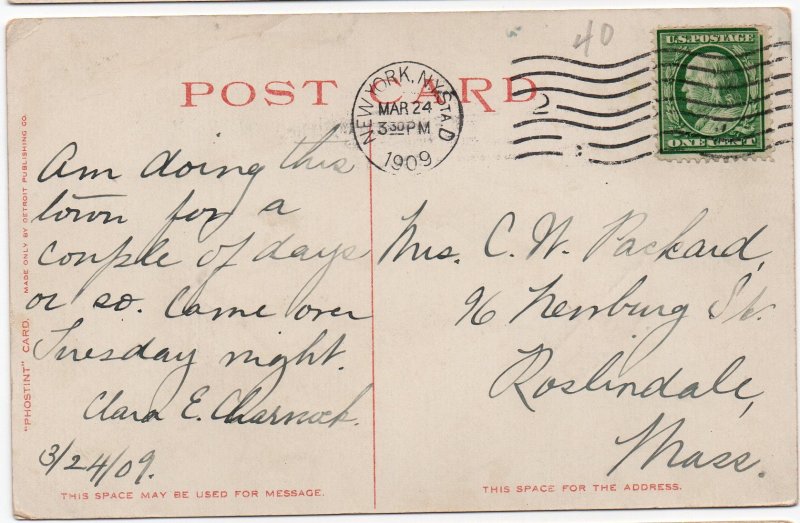 POST CARD
40
NEW YORK, N.Y. STA. D
MAR 24
3 30 PM
1909
2
U.S. POSTAGE
ONE CENT
Am doing this
town for a
couple of days
or so. Came over
Tuesday night.
Clara E. Charnock.
3/24/09.
Mrs. C. W. Packard,
96 Newburg St.
Roslindale,
Mass.
"PHOSTINT" CARD MADE ONLY BY DETROIT PUBLISHING CO.
THIS SPACE MAY BE USED FOR MESSAGE.
THIS SPACE FOR THE ADDRESS.